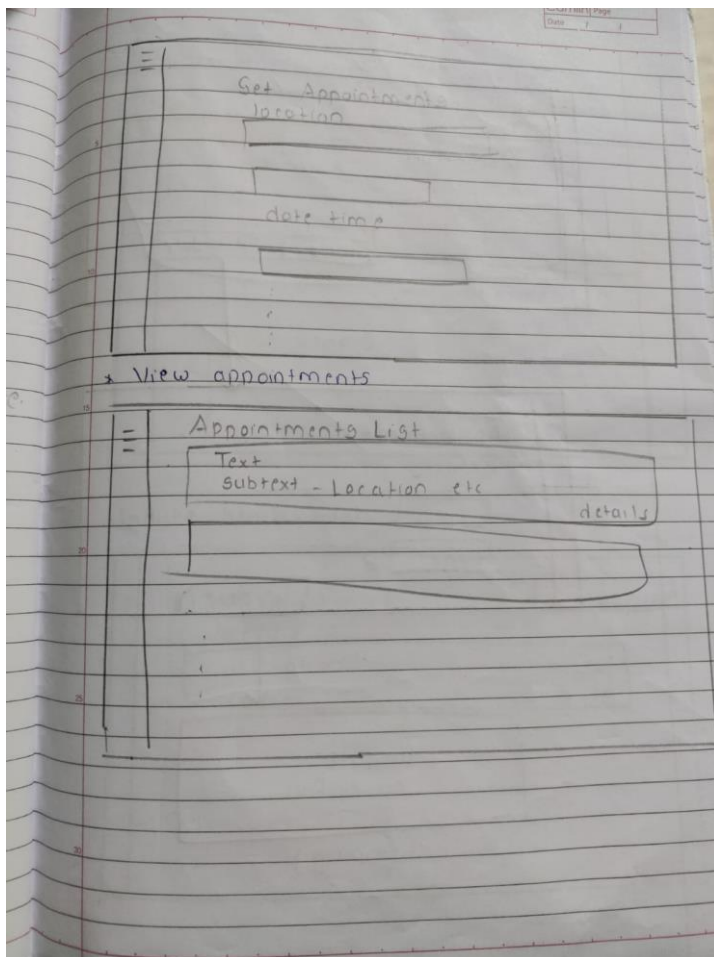 Page
Date
Get Appointments
location
date time
* View appointments
Appointments List
Text
Subtext - Location etc
details
5
10
15
20
25
30